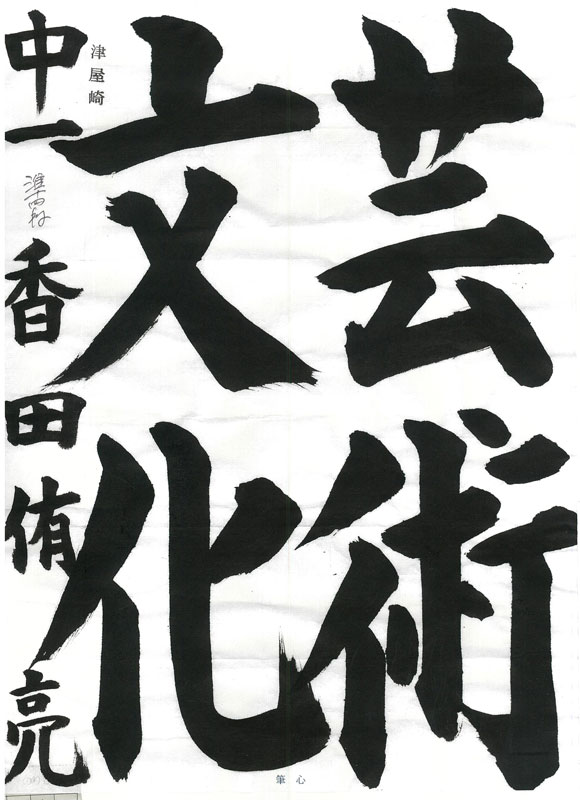 芸術
文化
津屋崎
中一 香田侑亮
心筆